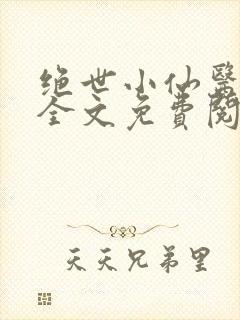 绝世小仙醫
全文免費閱
天天兄弟里